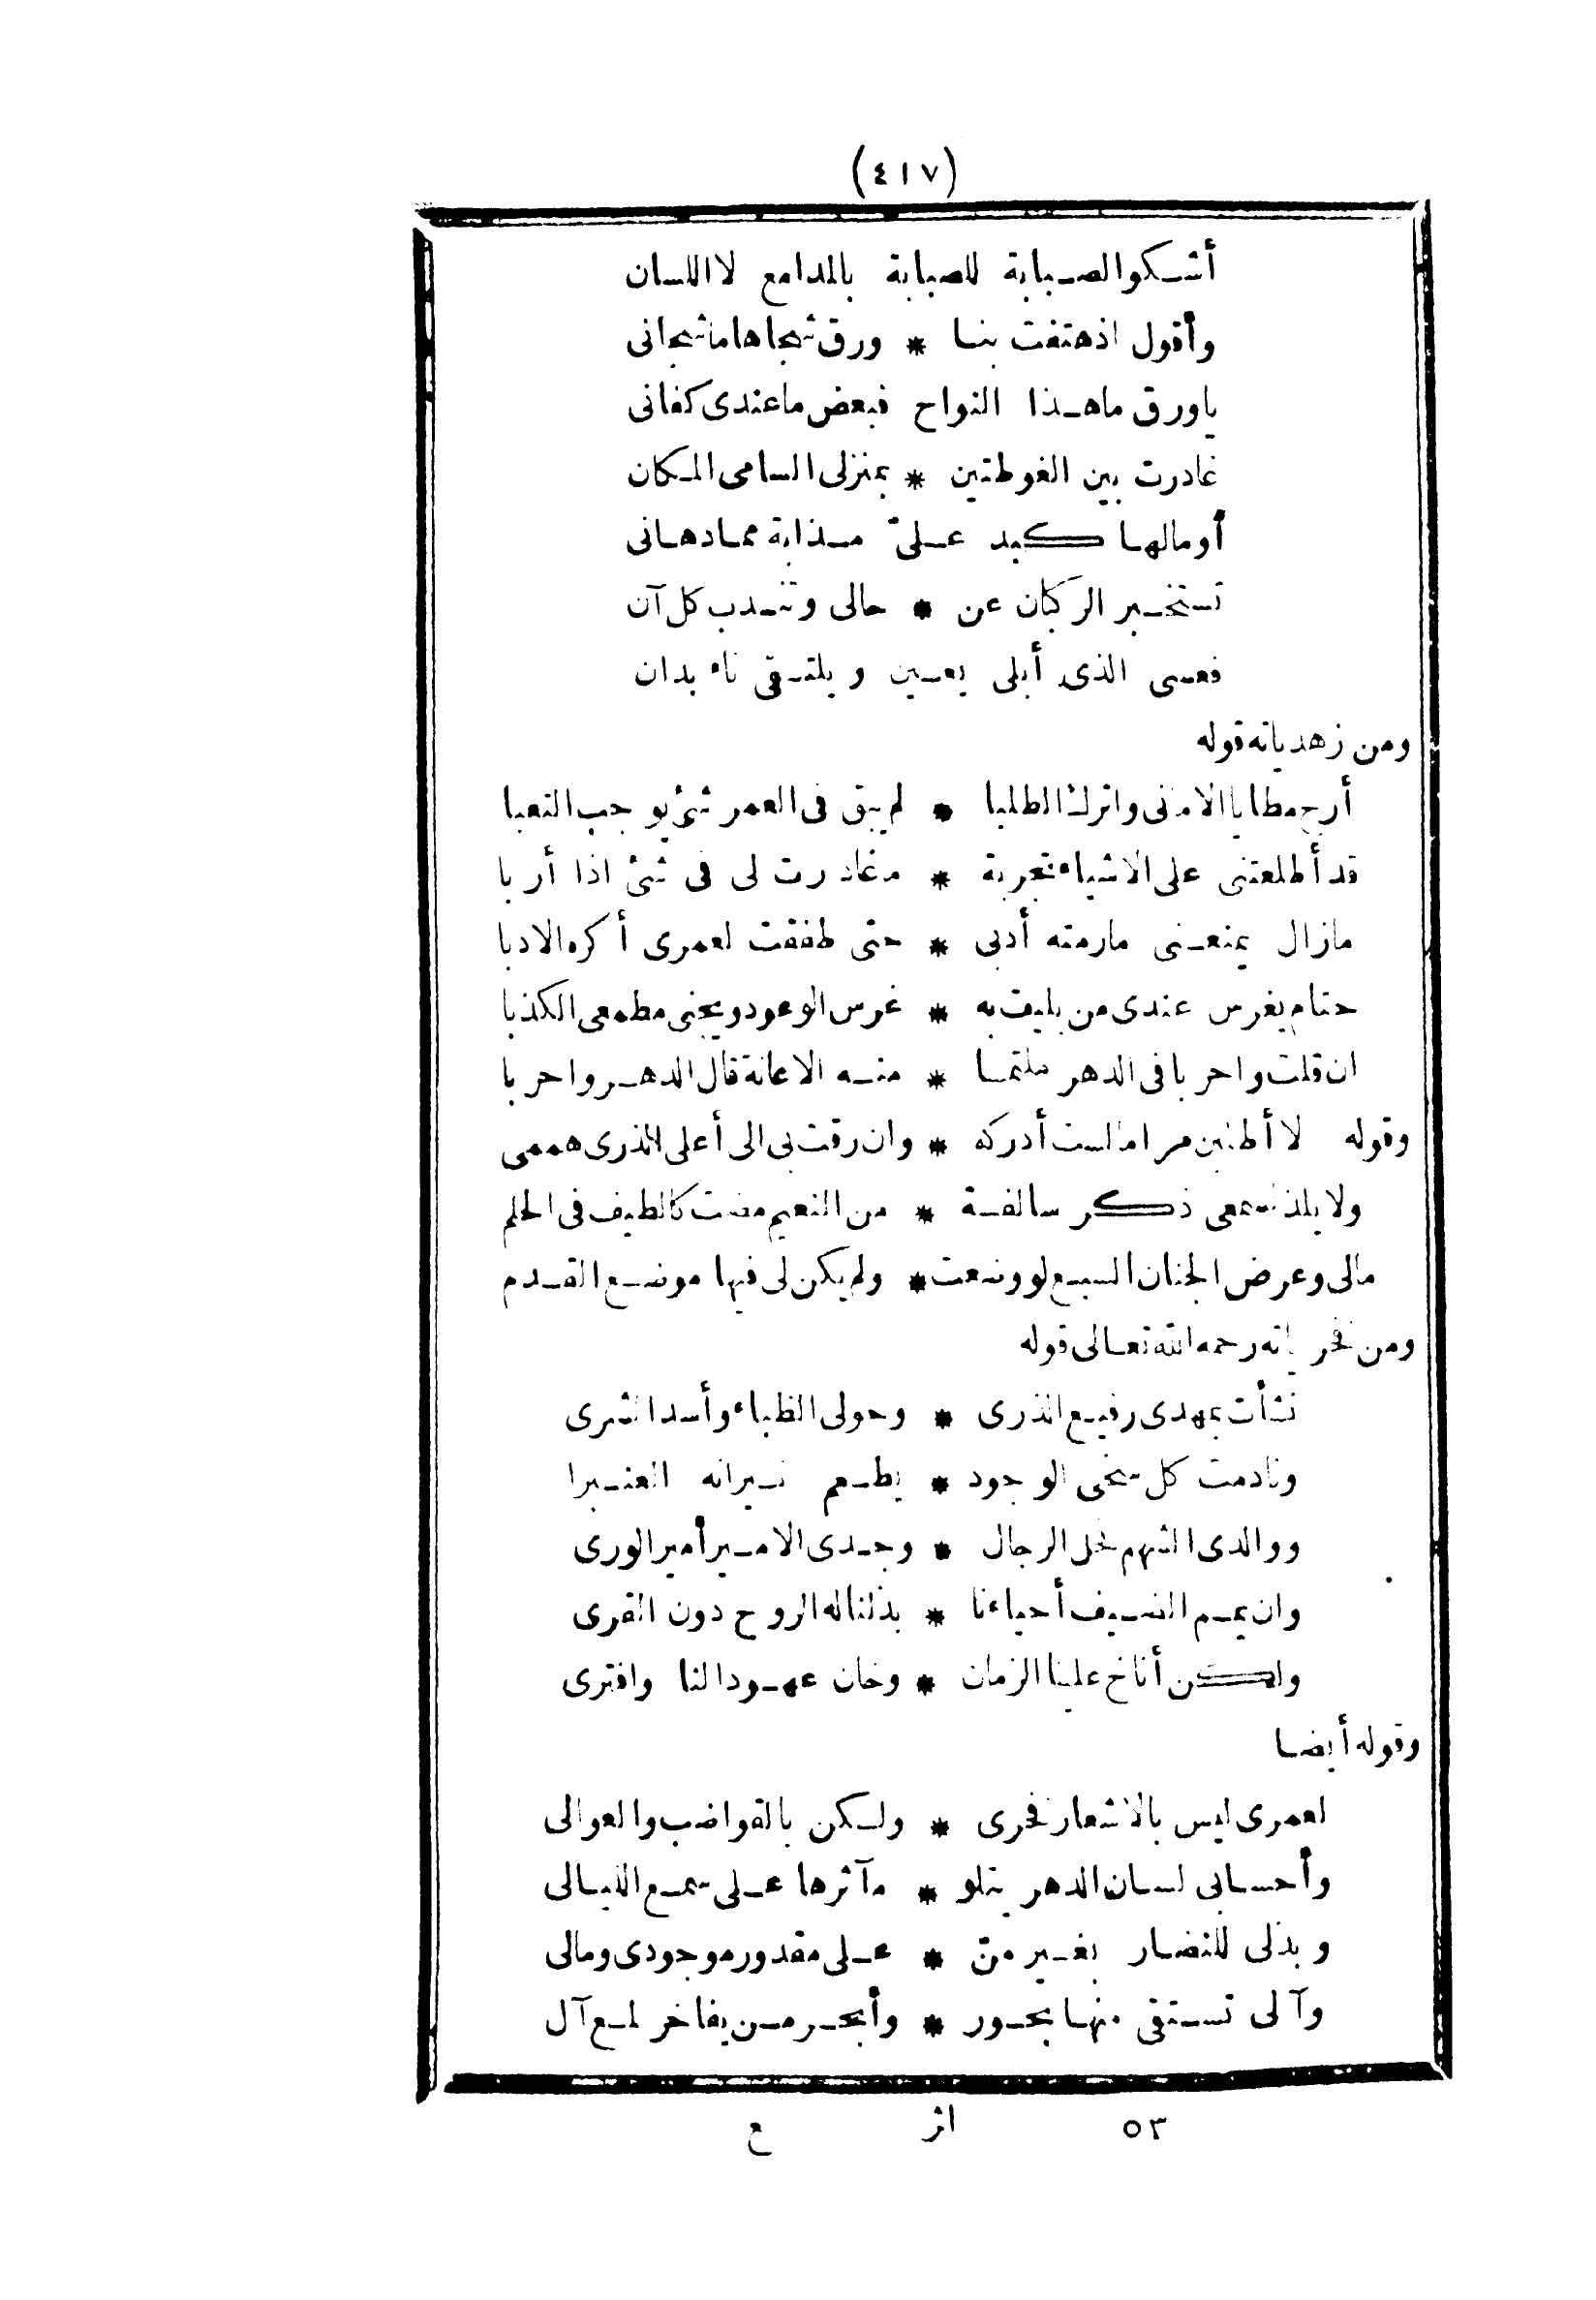 (٤١٧)
أشكو الصبابة للصبابة بالمدامع لا اللسان
وأقول اذ هتفت بنا * ورق شجاها ما شجانى
يا ورق ما هذا النواح فبعض ما عندى كفانى
غادرت بين الغوطتين * بمنزلى السامى المكان
أو ما لها كبد علىّ مذابة مما دهانى
تستخبر الركبان عن * حالى وتندب كل آن
فعسى الذى أبلى يعين ويلتقى ناء بدان
ومن زهدياته قوله
أرح مطايا الامانى واترك الطلبا * لم يبق فى العمر شئ يوجب التعبا
قد أطلعتنى على الاشياء تجربة * ما غادرت لى فى شئ اذا أربا
ما زال يمنعنى ما رمته أدبى * حتى طفقت لعمرى أكره الادبا
حتام يغرس عندى من بليت به * غرس الوعود ويجنى مطمعى الكذبا
ان قلت واحربا فى الدهر ملتمسا * منه الاعانة قال الدهر واحربا
وقوله لا أطلبن مراما لست أدركه * وان رقت بى الى أعلى الذرى هممى
ولا يلذ لسمعى ذكر سالفة * من النعيم مضت كالطيف فى الحلم
مالى وعرض الجنان السبع لو وضعت * ولم يكن لى فيها موضع القدم
ومن فخرياته رحمه الله تعالى قوله
نشأت بمهدى رفيع الذرى * وحولى الظباء وأسد الشرى
ونادمت كل سخى الوجود * يطعم نيرانه العنبرا
ووالدى الشهم فحل الرجال * وجدى الامير أمير الورى
وان يمم الضيف أحياءنا * بذلنا له الروح دون القرى
ولكن أناخ علينا الزمان * وخان عهودا لنا وافترى
وقوله أيضا
لعمرى ليس بالاشعار فخرى * ولكن بالقواضب والعوالى
وأحسابى لسان الدهر يتلو * مآثرها على سمع الليالى
وبذلى للنضار بغير منّ * على مقدور موجودى ومالى
وآلى تستقى منها بحور * وأبحر من يفاخر لمع آل
٥٣ اثر ع